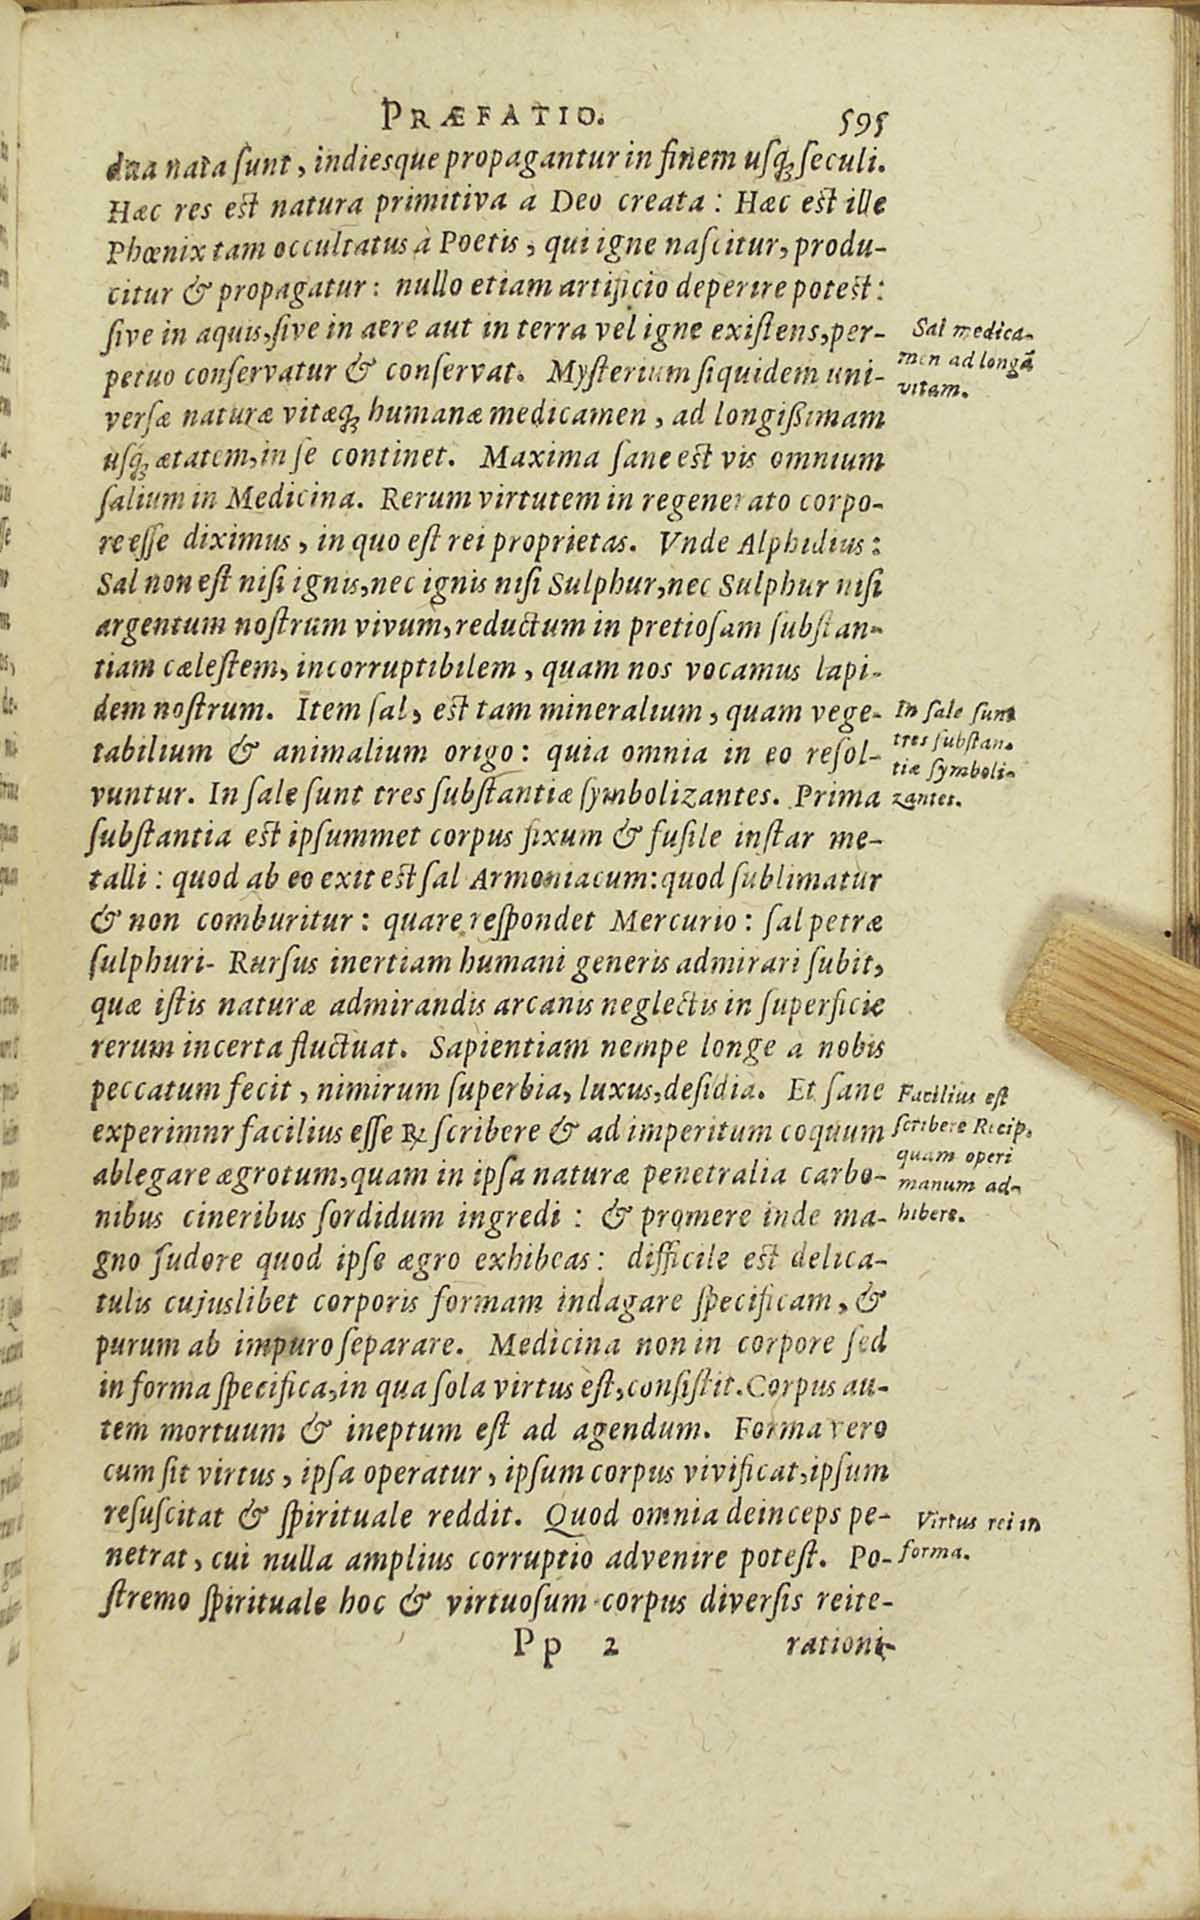 PRÆFATIO. 595
dua nata ſunt, indiesque propagantur in finem uſq́ʒ ſeculi.
Hæc res eſt natura primitiva à Deo creata: Hæc eſt ille
Phœnix tam occultatus à Poetis, qui igne naſcitur, produ-
citur & propagatur: nullo etiam artificio deperire poteſt:
ſive in aquis, ſive in aere aut in terra vel igne exiſtens, per-
petuo conſervatur & conſervat. Myſterium ſiquidem uni-
verſæ naturæ vitæq́ʒ humanæ medicamen, ad longiſſimam
uſq́ʒ ætatem, in ſe continet. Maxima ſane eſt vis omnium
ſalium in Medicina. Rerum virtutem in regenerato corpo-
re eſſe diximus, in quo eſt rei proprietas. Vnde Alphidius:
Sal non eſt niſi ignis, nec ignis niſi Sulphur, nec Sulphur niſi
argentum noſtrum vivum, reductum in pretioſam ſubſtan-
tiam cæleſtem, incorruptibilem, quam nos vocamus lapi-
dem noſtrum. Item ſal, eſt tam mineralium, quam vege-
tabilium & animalium origo: quia omnia in eo reſol-
vuntur. In ſale ſunt tres ſubſtantiæ ſymbolizantes. Prima
ſubſtantia eſt ipſummet corpus fixum & fuſile inſtar me-
talli: quod ab eo exit eſt ſal Armoniacum: quod ſublimatur
& non comburitur: quare reſpondet Mercurio: ſal petræ
ſulphuri- Rurſus inertiam humani generis admirari ſubit,
quæ iſtis naturæ admirandis arcanis neglectis in ſuperficie
rerum incerta fluctuat. Sapientiam nempe longe a nobis
peccatum fecit, nimirum ſuperbia, luxus, deſidia. Et ſane
experimnr facilius eſſe ℞ ſcribere & ad imperitum coquum
ablegare ægrotum, quam in ipſa naturæ penetralia carbo-
nibus cineribus ſordidum ingredi: & promere inde ma-
gno ſudore quod ipſe ægro exhibeas: difficile eſt delica-
tulis cujuslibet corporis formam indagare ſpecificam, &
purum ab impuro ſeparare. Medicina non in corpore ſed
in forma ſpecifica, in qua ſola virtus eſt, conſiſtit. Corpus au-
tem mortuum & ineptum eſt ad agendum. Forma vero
cum ſit virtus, ipſa operatur, ipſum corpus vivificat, ipſum
reſuſcitat & ſpirituale reddit. Quod omnia deinceps pe-
netrat, cui nulla amplius corruptio advenire poteſt. Po-
ſtremo ſpirituale hoc & virtuoſum corpus diverſis reite-
Pp 2 rationi-
Sal medica-
men ad longã
vitam.
In ſale ſunt
tres ſubſtan-
tiæ ſymboli-
zantes.
Facilius eſt
ſcribere Recip.
quam operi
manum ad-
hibere.
Virtus rei in
forma.